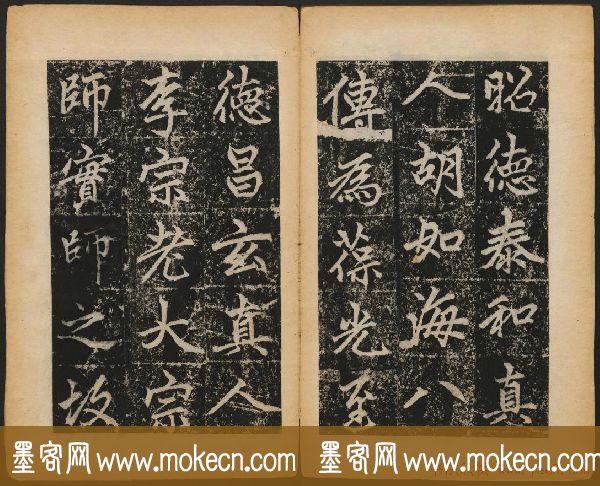 昭德泰和真
人胡如海八
傳為葆光至
德昌玄真人
李宗老大宗
師實師之故
墨客网 www.mokecn.com 墨客网 www.mokecn.com